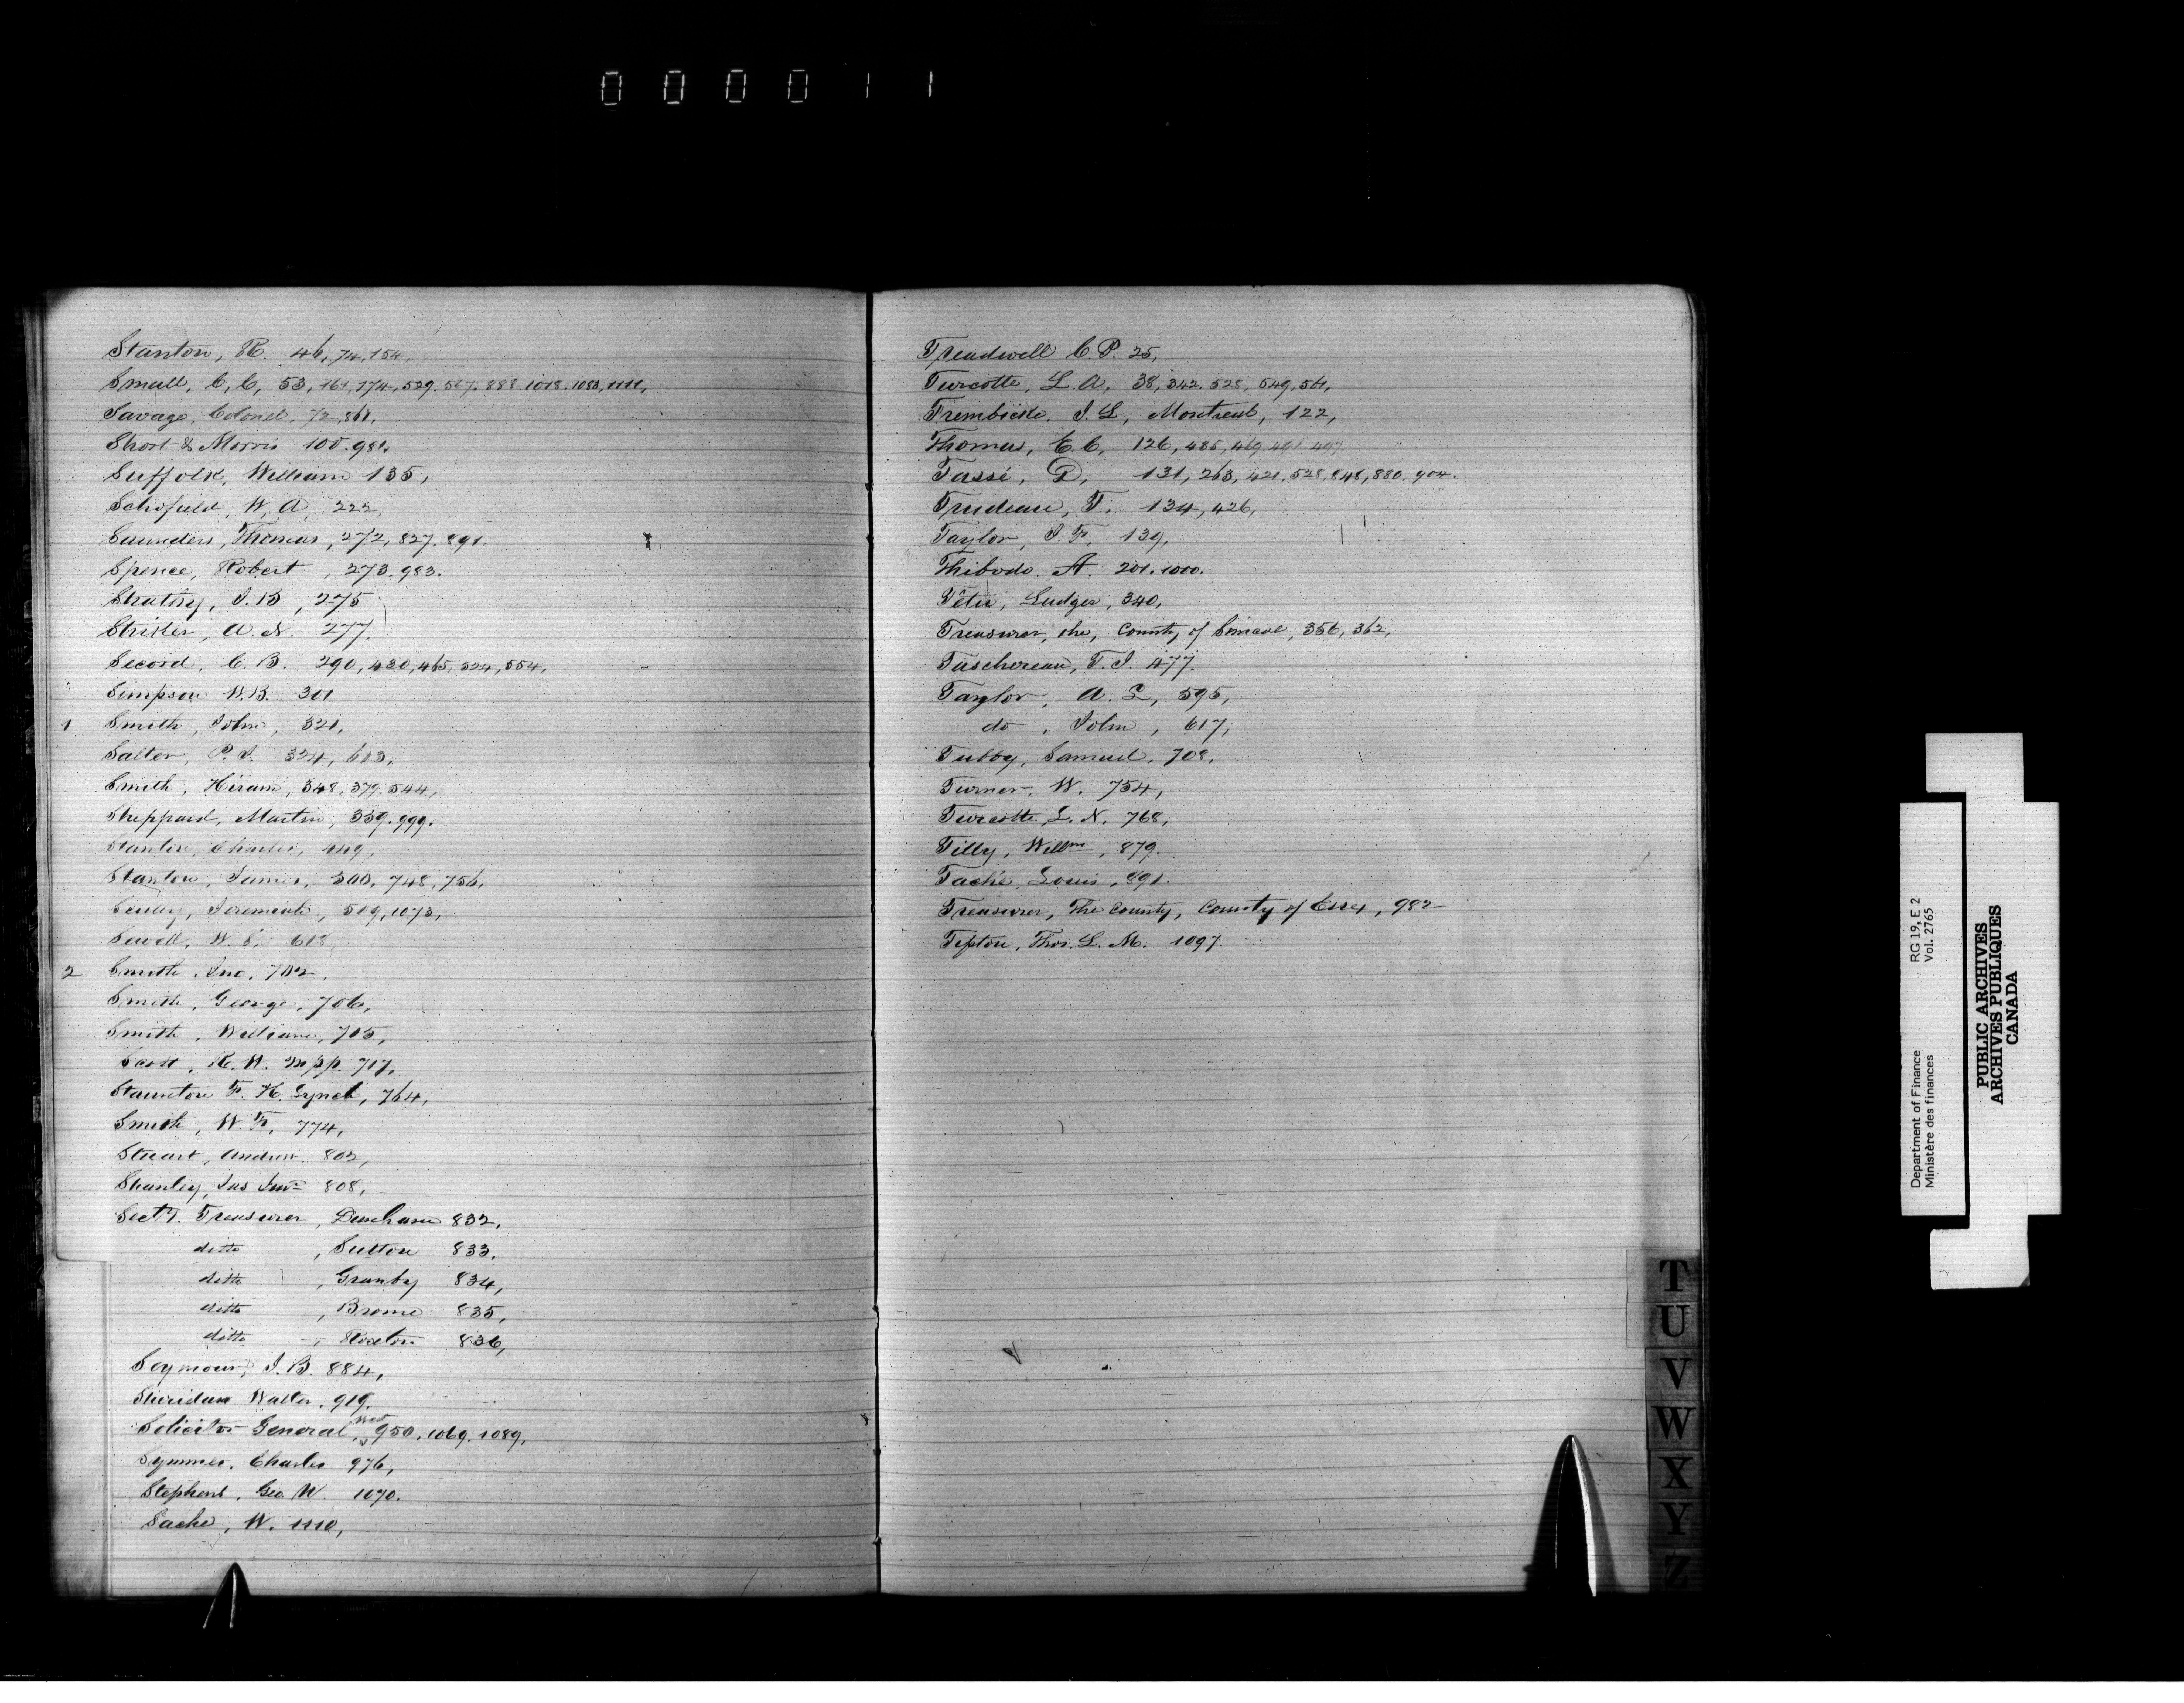 0 0 0 0 1 1
Stanton, R. 46, 74, 154,
Small, C, C, 53, 161, 174, 529. 567. 888 1018. 1083, 1111,
Savage, Colonel, 72, 861,
Short & Morris 100. 981.
Suffolk, William 135,
Schofield, W, A, 222,
Saunders, Thomas, 272, 827. 891.
Spence, Robert, 273. 983.
Strathy, J. B, 275
Striker, A. N. 277.
Secord, C. B. 290, 430, 465, 524, 554,
Simpson W. B. 301
1 Smith, John, 321,
Salter, P. J. 324, 613,
Smith, Hiram, 348, 379, 544,
Sheppard, Martin, 359. 999.
Stanton, Charles, 449,
Stanton, James, 500, 748, 756,
Scully, Jeremiah, 509, 1073,
Sewell, W. S, 618,
2 Smith, Jno, 702,
Smith, George, 706,
Smith, William, 715,
Scott, R. W. Mpp. 717,
Staunton F. H. Lynch, 764,
Smith, W. F, 774,
Stuart, Andrew. 802,
Shanley, Jas 808,
Secty. Treasurer, Dunham 832,
ditto, Sutton 833,
ditto, Granby 834,
ditto, Brome 835,
ditto, Roxton 836,
Seymour, J. B. 884,
Sheridan Walter, 919,
Solicitor General, West 950, 1069. 1089,
Symmes, Charles 976,
Stephens, Geo W. 1070.
Sache, W. 1110,
Treadwell C. P. 25,
Turcotte, L. A, 38, 342. 528, 549, 561,
Trembicke, J. L, Montreal, 122,
Thomas, E. C, 126, 485, 469, 491. 497
Tassé, D, 131, 263, 421, 528, 848, 880. 904.
Trudeau, T. 134, 426,
Taylor, J. F, 139,
Thibodo. A. 201. 1000.
Têtu, Ludger, 340,
Treasurer, the, County of Simcoe, 356, 362,
Taschereau, T. J. 477.
Taylor, A. L, 595,
do, John, 617,
Tubby, Samuel, 708,
Turner, W. 754,
Turcotte, L. N. 768,
Tilly, Willm, 879.
Taché, Louis, 891.
Treasurer, The County, County of Essex, 982
Tipton, Thos. L. M. 1097.
T
U
V
W
X
Y
Z
Department of Finance RG 19, E 2
Ministère des finances Vol. 2765
PUBLIC ARCHIVES
ARCHIVES PUBLIQUES
CANADA